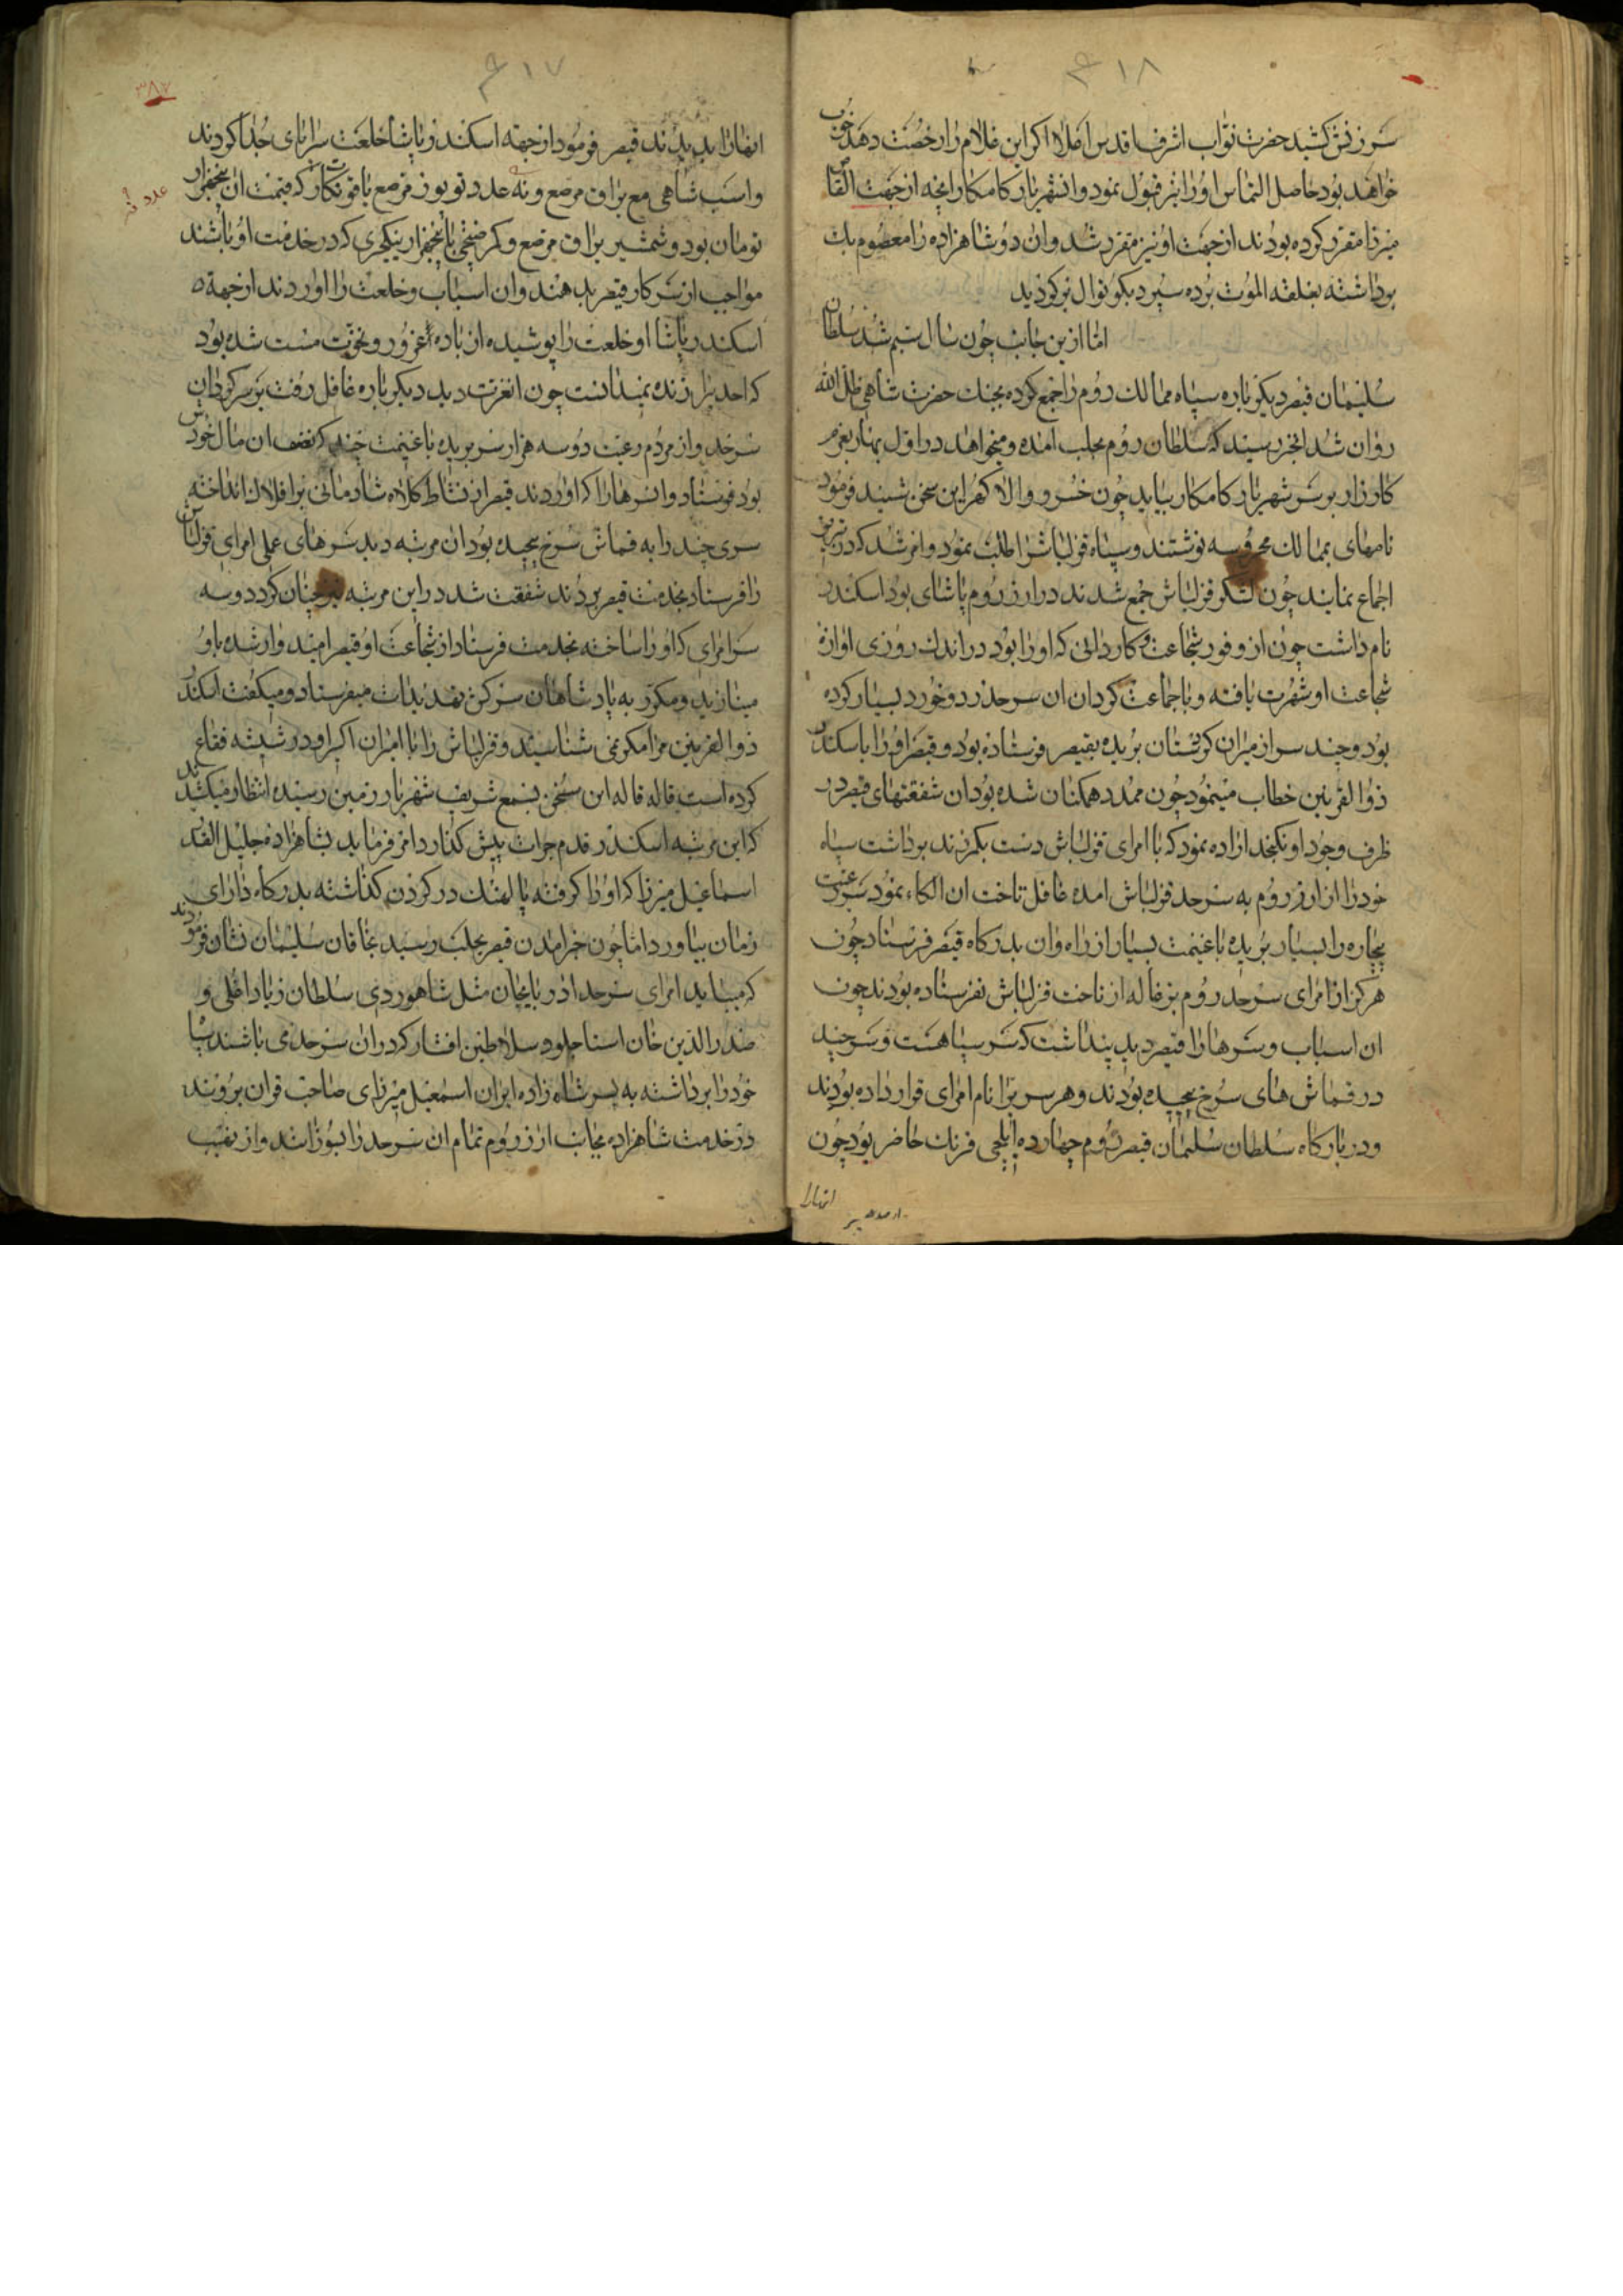 ۴۱۸
سر زنش کشید حضرت نواب اشرف اقدس اعلا اکر این غلام را رخصت دهد خوب
خواهند بود حاصل التماس او را نیز قبول نمود و انشهریار کامکار انچه از جهت القاص
میرزا مقرر کرده بودند از جهت او نیز مقرر شد و ان دو شاهزاده را معصوم بک
برداشته بغلقه الموت برده سپرد بکوتوال برکردید
اما ازین جانب چون سال ستم شد سلطان
سلیمان قیصر دیکر باره سپاه ممالک روم را جمع کرده بجنک حضرت شاهی ظل الله
روان شد انخبر رسید که سلطان روم بحلب امده و میخواهد در اول بهار بعزم
کارزار بر سر شهریار کامکار بیاید چون خسرو والا کهر این سخن شنید فرمود
نامهای بممالک محروسه نوشتند و سپاه قزلباش را طلب نمود و امر شد که در تبریز
اجماع نمایند چون لشکر قزلباش جمع شدند در ارزروم پاشای بود اسکندر
نام داشت چون از وفور شجاعت و کاردانی که او را بود در اندک روزی اوازهٔ
شجاعت او شهرت یافته و با جماعت کردان ان سرحد زد و خورد بسیار کرده
بود و چند سر از میران کردستان بریده بقیصر فرستاده بود و قیصر او را با سکندر
ذوالقرنین خطاب مینمود چون ممدد همکنان شده بود ان شفقتهای قیصر در
ظرف وجود او نکنجد اراده نمود که با امرای قزلباش دست بکمر زند برداشت سپاه
خود را از ارزروم به سرحد قزلباش امده غافل تاخت ان الکاء نمود سر رعیت
بیچاره را بسیار بریده با غنیمت بسیار از راه وان بدرکاه قیصر فرستاد چون
هرکز از امرای سرحد روم بزغاله از تاخت قزلباش نفرستاده بودند چون
ان اسباب و سرها را قیصر دید پنداشت که سر سپاهست و سر چند
در قماش های سرخ پیچیده بودند و هر سر برا نام امرای قرار داده بودند
و در بارکاه سلطان سلیمان قیصر روم چهارده ایلچی فرنک حاضر بود چون
انهارا
۴۱۷
۳۸۷
انهارا بدیدند قیصر فرمود از جهته اسکندر پاشا خلعت سراپای جدا کردند
و اسب شاهی مع یراق مرصع و نه عدد توپوز مرصع یاقوت نکار که قیمت ان پنجهزار
عدد نه
تومان بود و شمشیر یراق مرصع و کمر خنجر با پنجهزار ینکچری که در خدمت او باشند
مواجب از سرکار قیصر بدهند و ان اسباب و خلعت را اوردند از جهة
اسکندر پاشا او خلعت را پوشیده از باده غرور و نخوت مست شده بود
که احد برا زنده نمیدانست چون انعزت دید دیکر باره غافل رفت بر سر کردان
سرحد و از مردم رعیت دو سه هزار سر بریده با غنیمت چند که نصف ان مال خودش
بود فرستاد و ان سرها را که اوردند قیصر از نشاط کلاه شادمانی برافلاک انداخته
سری چند را به قماش سرخ پیچیده بود ان مرتبه دید سرهای عملی امرای قزلباش
را فرستاد بخدمت قیصر بردند شفقت شد در این مرتبه نیز چنان کرد دو سه
سر امرای که او را ساخته بخدمت فرستاد از شجاعت او قیصر امیدوار شده باو
مینازید و مکرر به پادشاهان سرکش تهدیدات میفرستاد و میکفت اسکندر
ذوالقرنین مرا مکر نمی شناسید و قزلباش را با امیران اکبر او در شیشه فقاع
کرده است قاله قاله این سخن بسمع شریف شهریار زمین رسیده انتظار میکشیدند
که این مرتبه اسکندر قدم جرات پیش کذارد امر فرماید بشاهزاده جلیل القدر
اسماعیل میرزا که او را کرفته پالهنک در کردن کذاشته بدرکاه دارای
زمان بیاورد اما چون خرامدن قیصر بحلب رسید بخاقان سلیمان نشان فرمودند
که میباید امرای سرحد اذربایجان مثل شاهوردی سلطان زیاد اغلی و
صدرالدین خان استاجلو و سلاطین افشار که در ان سرحد می باشند سپاه
خود را برداشته به پسر شاه زاده ایران اسمعیل میرزای صاحب قران بروند
در خدمت شاهزاده بجانب ارزروم تمام ان سرحد را بسوزانند و از نهیب